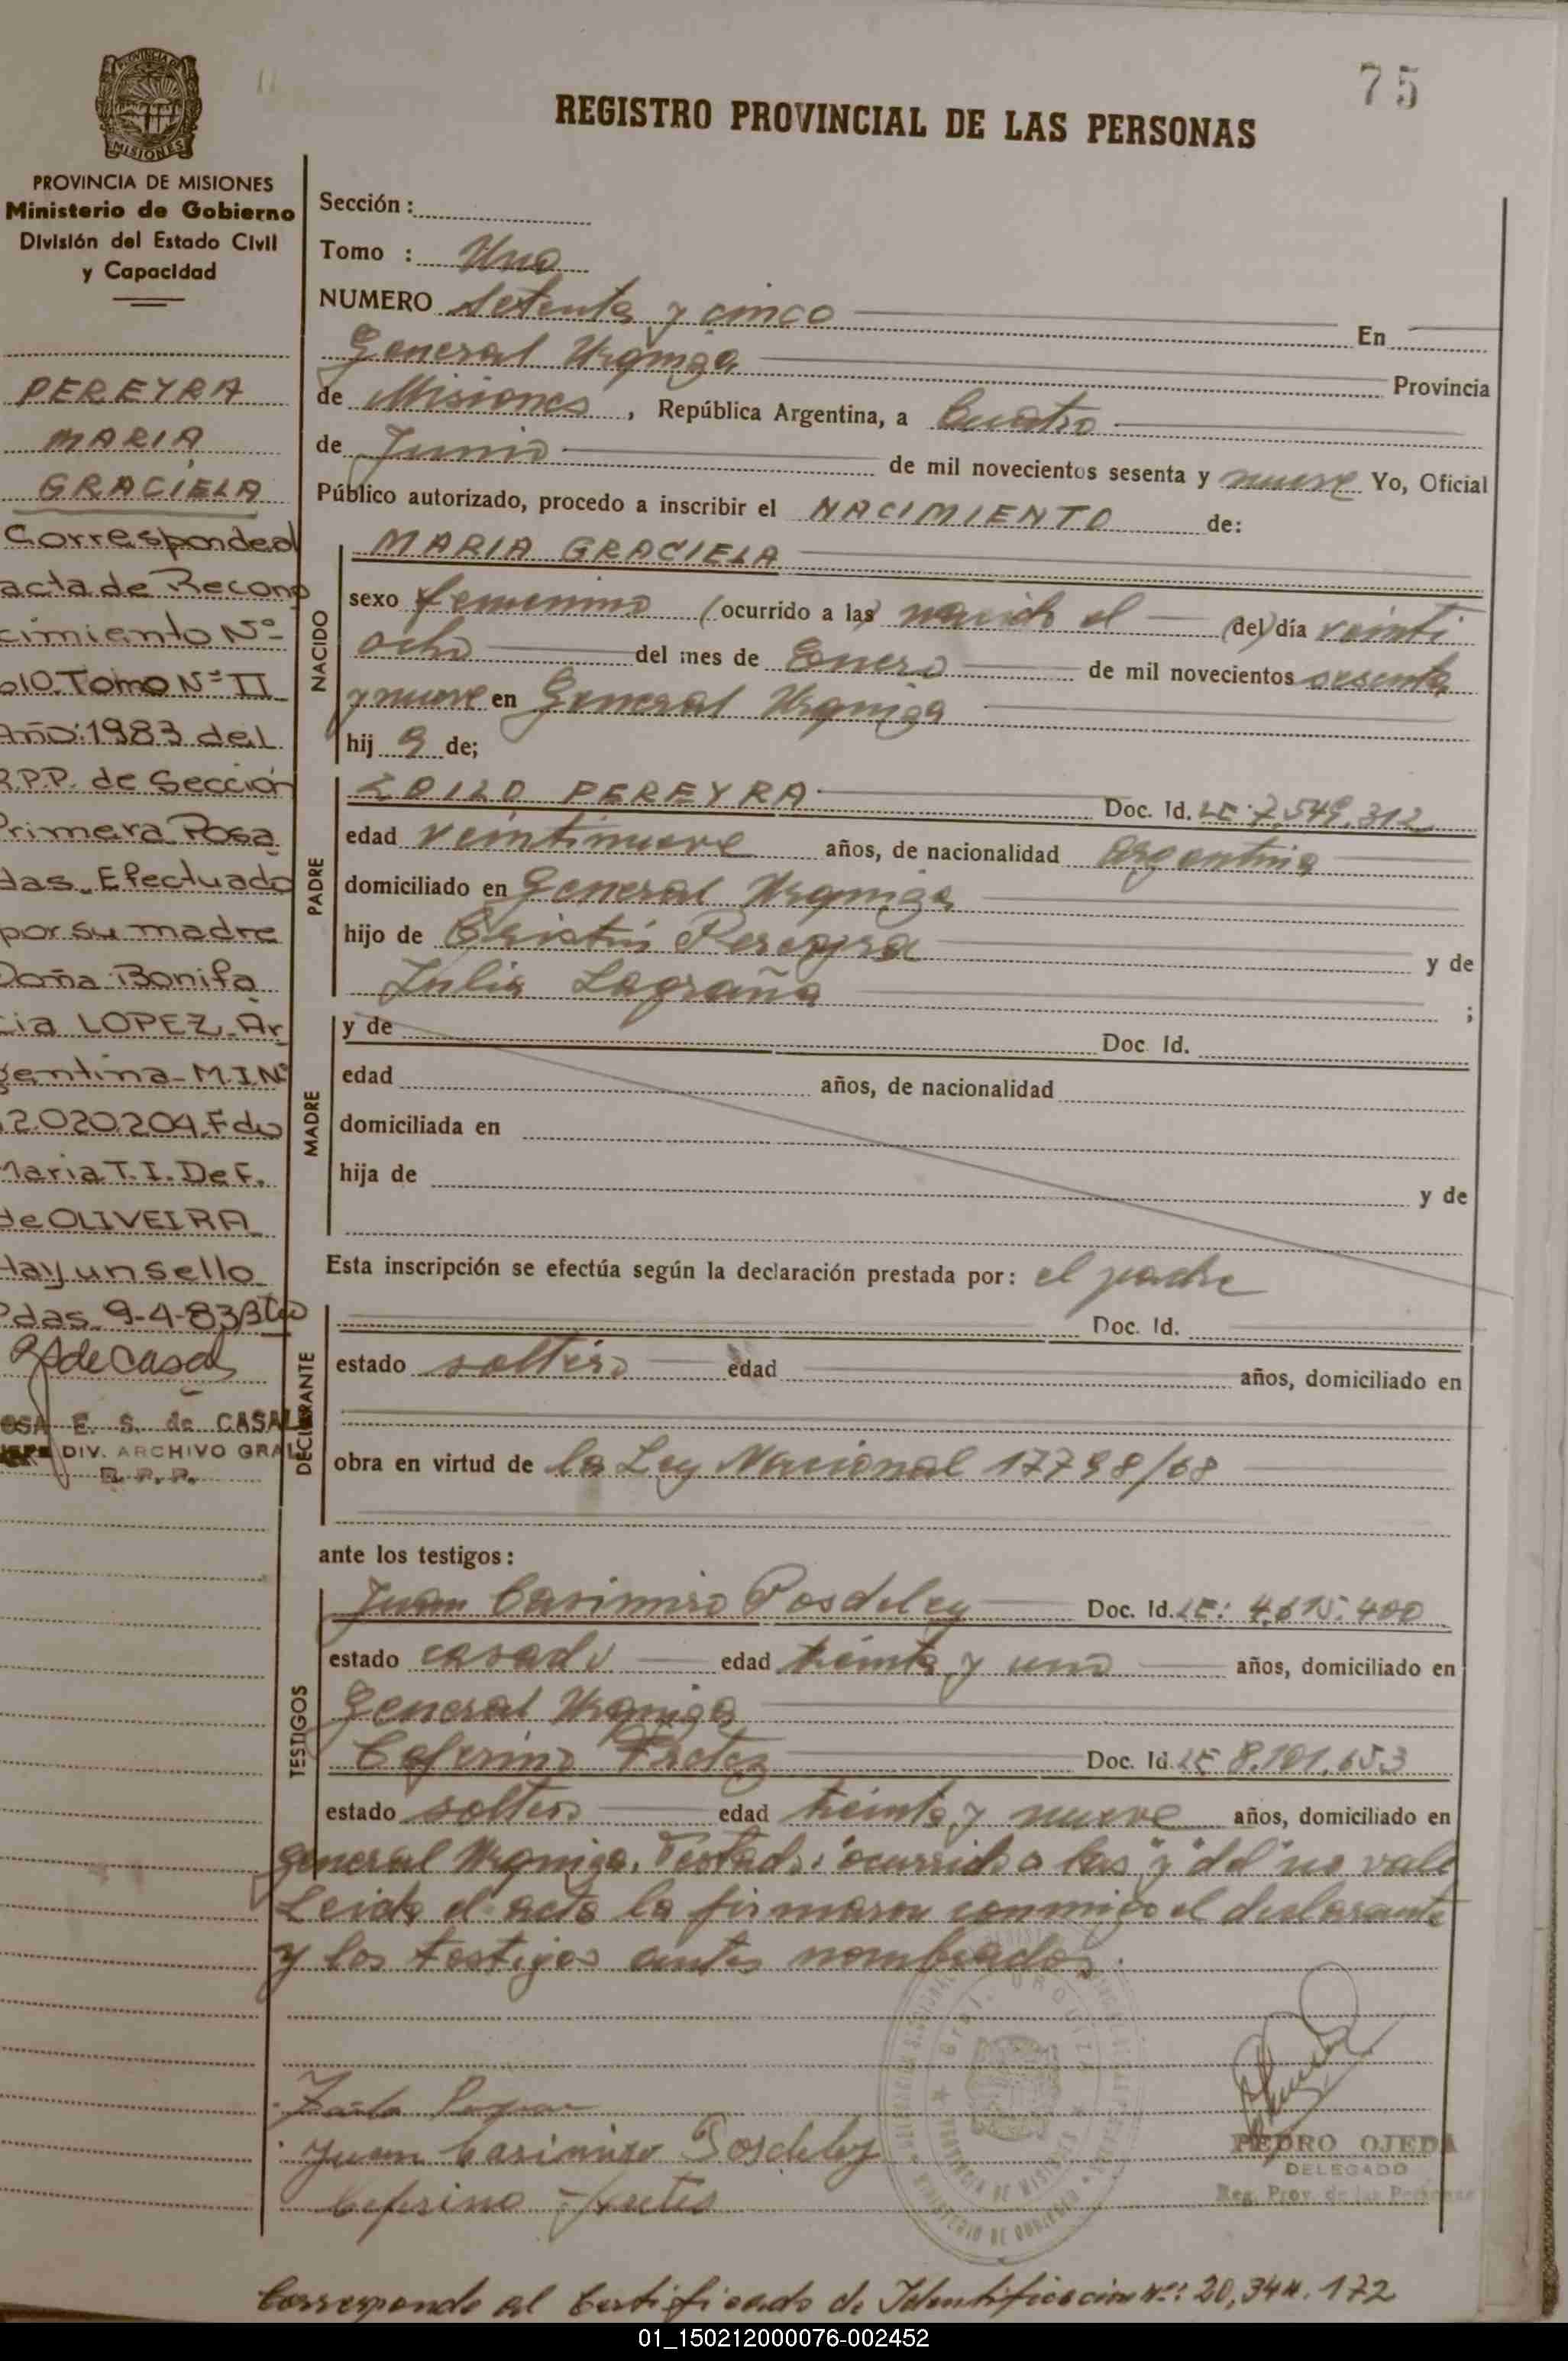 75
REGISTRO PROVINCIAL DE LAS PERSONAS
PROVINCIA DE MISIONES
Ministerio de Gobierno
División del Estado Civil
y Capacidad
PEREYRA
MARIA
GRACIELA
Corresponde al
acta de Recono
cimiento Nº
010. Tomo Nº II
Año: 1983 del
R.P.P. de Sección
Primera Posa
das. Efectuado
por su madre
Doña: Bonifa
cia LOPEZ. Ar
gentina - M.I.Nº
12.020.204. Fdo
Maria T. I. De F.
de OLIVEIRA
Hay un sello
Pdas. 9-4-83
R S de Casal
ROSA E. S. de CASAL
JEFE DIV. ARCHIVO GRAL
R. P. P.
Sección :
Tomo : Uno
NUMERO Setenta y cinco En
General Urquiza Provincia
de Misiones, República Argentina, a Cuatro
de Junio de mil novecientos sesenta y nueve Yo, Oficial
Público autorizado, procedo a inscribir el NACIMIENTO de:
NACIDO
MARIA GRACIELA
sexo femenino (ocurrido a las) nacido el (del) día veinti
ocho del mes de Enero de mil novecientos sesenta
y nueve en General Urquiza
hij a de;
PADRE
ZOILO PEREYRA Doc. Id. LE: 7.549.312
edad veintinueve años, de nacionalidad Argentina
domiciliado en General Urquiza
hijo de Cristin Pereyra y de
Julia Lagraña ;
MADRE
y de Doc. Id.
edad años, de nacionalidad
domiciliada en
hija de y de
Esta inscripción se efectúa según la declaración prestada por: el padre
DECLARANTE
Doc. Id.
estado soltero edad años, domiciliado en
obra en virtud de la Ley Nacional 17798/68
ante los testigos:
TESTIGOS
Juan Casimiro Posdeley Doc. Id. LE: 4.615.400
estado casado edad treinta y uno años, domiciliado en
General Urquiza
Ceferino Fretes Doc. Id. LE 8.101.653
estado soltero edad treinta y nueve años, domiciliado en
General Urquiza. Testado: "ocurrido a las" y "del" no vale
Leida el acta la firmaron conmigo el declarante
y los testigos antes nombrados.
Juan Casimiro Posdeley
Ceferino Fretes
PEDRO OJEDA
DELEGADO
Reg. Prov. de las Personas
Gral. URQUIZA
PROVINCIA DE MISIONES
MINISTERIO DE GOBIERNO
Corresponde al Certificado de Identificacion Nº: 20.344.172
01_150212000076-002452